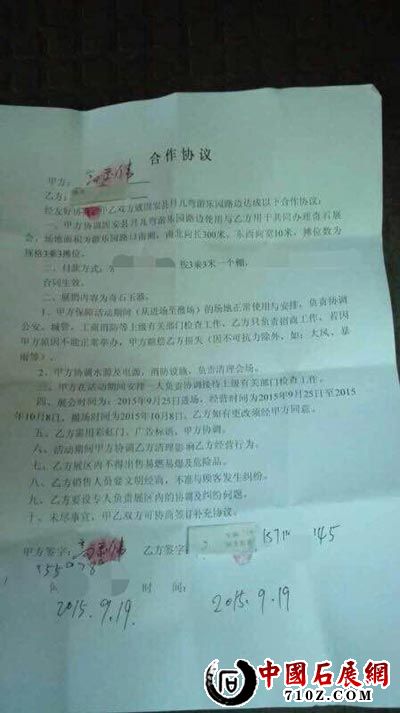 合作协议
甲方:
乙方:
经友好协商,甲乙双方就固安县月儿弯游乐园路边达成以下合作协议:
一、甲方协调固安县月儿弯游乐园路边使用与乙方用于共同办理奇石展
会,场地面积为游乐园路以南侧,南北向长300米,东西向宽10米,摊位数为
规格3乘3摊位。
二、付款方式: 按3乘3米一个棚,
合同生效。
二、展销内容为奇石玉器。
1、甲方保障活动期间(从进场至撤场)的场地正常使用与安排,负责协调
公安、城管、工商消防等上级有关部门检查工作。乙方只负责招商工作,若因
甲方原因不能正常举办,甲方赔偿乙方损失(因不可抗力除外,如:大风、暴
雨等)。
2、甲方协调水源及电源,消防设施,负责清理会场。
三、甲方在活动期间安排一人负责协调接待上级有关部门检查工作。
四、展会时间为:2015年9月25日进场,经营时间为2015年9月25日至2015
年10月8日,撤场时间为2015年10月8日。乙方如有更改须经甲方同意。
五、乙方需用彩虹门、广告标语,甲方协调。
六、活动期间甲方协调乙方清理影响乙方经营行为。
七、乙方展区内不得出售易燃易爆及危险品。
八、乙方销售人员要文明经商,不准与顾客发生纠纷。
九、乙方要设专人负责展区内的协调及纠纷问题。
十、未尽事宜,甲乙双方可协商签订补充协议。
甲方签字: 乙方签字: 45
时间:
2015.9.19. 2015.9.19
中國石展網
7102.COM